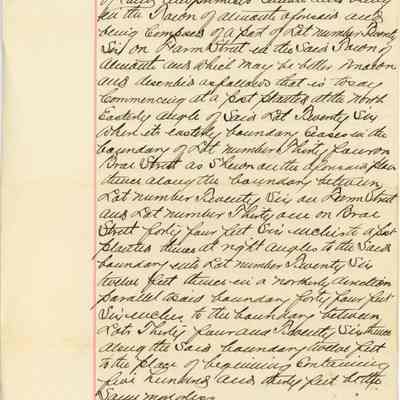 in the Town of Almonte aforesaid and
being composed of a part of Lot number Twenty
Six on Farm Street in the Said Town of
Almonte and which may be better known
and described as follows that is to say
Commencing at a post planted at the North
Easterly angle of Said Lot Twenty Six
where its easterly boundary ceases in the
boundary of Lot number Thirty four on
Brae Street as shewn on the aforesaid plan
thence along the boundary between
Lot number Twenty Six on Farm Street
and Lot number Thirty on Brae
Street forty four feet Six inches to a post
planted thence at right angles to the Said
boundary into Lot number Twenty Six
twelve feet thence in a northerly direction
parallel to said boundary forty four feet
Six inches to the boundary between
Lots Thirty four and Twenty Six thence
along the Said boundary twelve feet
to the place of beginning Containing
five hundred and thirty feet be the
Same more or less